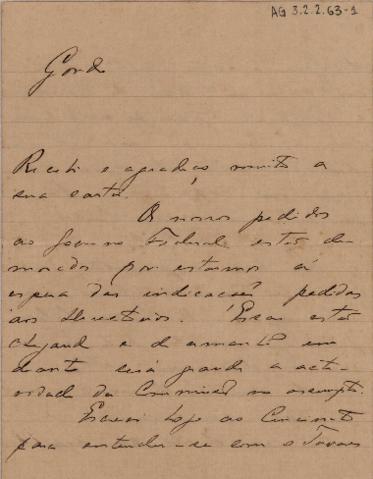 AG 3.2.2.63-1
Gordo
Recebi e agradeço muito a
sua carta.
Os nossos pedidos
ao Governo Federal estão de-
morados por estarmos á
espera das indicações pedidas
aos Directorios. Essas estão
chegando e d'amanhã em
diante será grande a acti-
vidade da Commissão no assumpto.
Escrevi hoje ao Cincinato
para entender-se com o Tavares